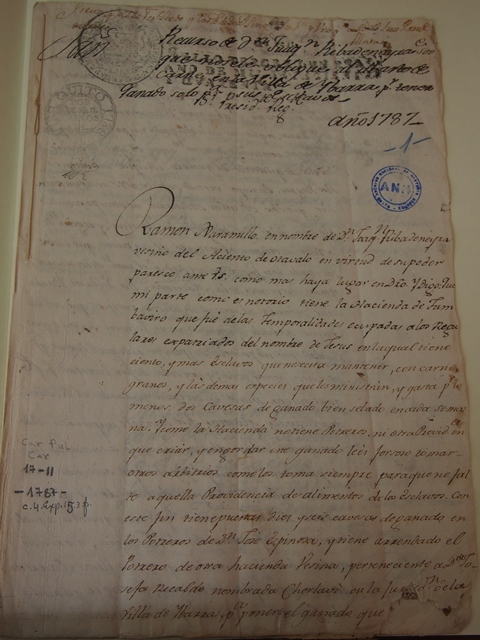 Recurso de Dn Joaqn Ribadeneyra sre
que no se le obligue al Abasto de
Carne en la Villa de Ybarra pr
ganado solo pa sus esclavos
Año 1787
-1
QUITO
AN
Ramon Jaramillo, en nombre de Dn Joaqn Ribadeneyra
vecino del Asiento de Otavalo en virtud de su poder
paresco ante Vs. como mas haya lugar en dro Y digo. Que
mi parte como es notorio tiene la Hacienda de Tum
baviro que fué de las Temporalidades ocupadas a los Regu
lares expatriados del nombre de Jesus en la qual tiene
ciento, y mas Esclavos que necesita mantener, con carne
granos, y las demas especies que les ministran, y gasta pr lo
menos dos Cavesas de ganado bien sebado en cada sema
na. Y como la Hacienda no tiene Potreros, ni otra Providencia
que criar, y engordar ese ganado le és forsoso tomar
otros arbitrios como los toma siempre para que no fal
te a aquella Providencia de alimentos de los Esclavos. Con
este fin tiene puestas Diez y seis cavesas de ganado en
los Potreros de Dn José Espinosa, y tiene arrendado el
Potrero de otra hacienda Vesina, perteneciente a Da Jo
sefa Recalde nombrada Chorlavi en la Jurisdon de la
Villa de Ybarra, pa poner el ganado que
Car
17-II
-1787-
c.4 Exp.15